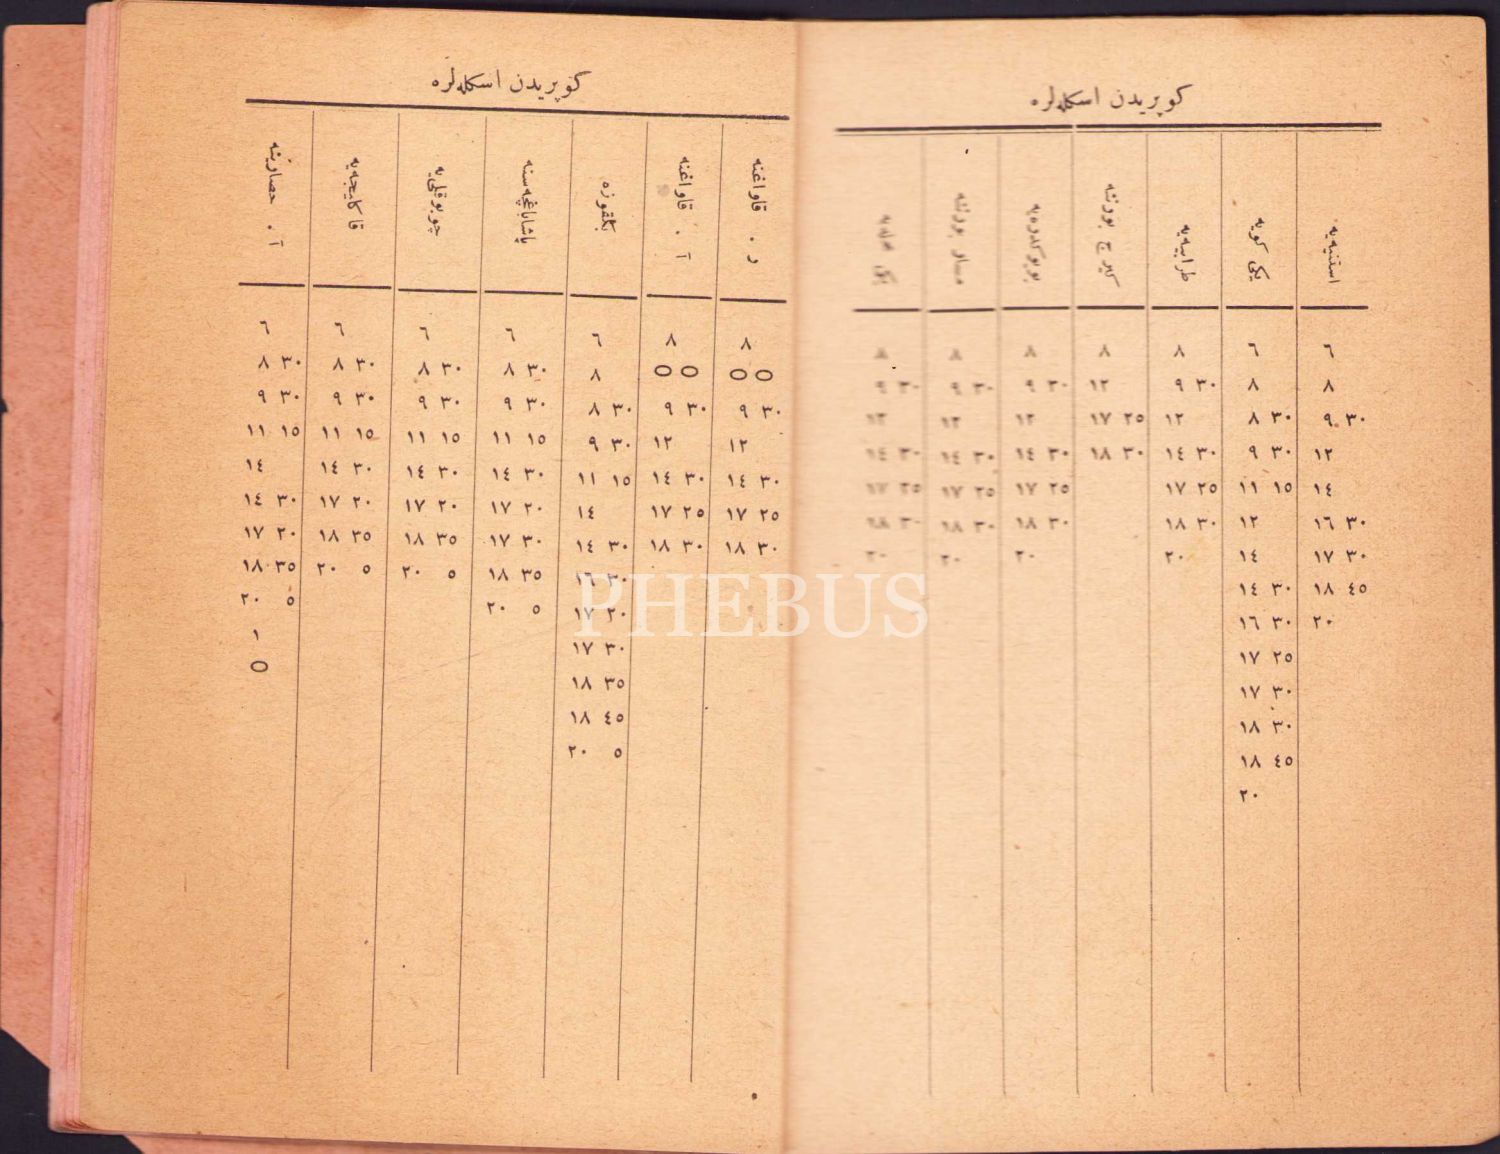 كوپريدن اسكله‌لره
استنيه‌يه
يكى كويه
طرابيه‌يه
كيرج بورننه
بويوكدره‌يه
مسار بورننه
يكى محله‌يه
٦ ٦ ٨ ٨ ٨ ٨ ٨
٨ ٨ ٩ ٣٠ ١٢ ٩ ٣٠ ٩ ٣٠ ٩ ٣٠
٩ ٣٠ ٨ ٣٠ ١٢ ١٧ ٢٥ ١٢ ١٢ ١٢
١٢ ٩ ٣٠ ١٤ ٣٠ ١٨ ٣٠ ١٤ ٣٠ ١٤ ٣٠ ١٤ ٣٠
١٤ ١١ ١٥ ١٧ ٢٥ ١٧ ٢٥ ١٧ ٢٥ ١٧ ٢٥
١٦ ٣٠ ١٢ ١٨ ٣٠ ١٨ ٣٠ ١٨ ٣٠ ١٨ ٣٠
١٧ ٣٠ ١٤ ٢٠ ٢٠ ٢٠ ٢٠
١٨ ٤٥ ١٤ ٣٠
٢٠ ١٦ ٣٠
١٧ ٢٥
١٧ ٣٠
١٨ ٣٠
١٨ ٤٥
٢٠
كوپريدن اسكله‌لره
ر . قاواغنه
آ . قاواغنه
بكقوزه
پاشاباغچه‌سنه
چوبوقلى‌يه
قانليجه‌يه
آ . حصارينه
٨ ٨ ٦ ٦ ٦ ٦ ٦
٥٥ ٥٥ ٨ ٨ ٣٠ ٨ ٣٠ ٨ ٣٠ ٨ ٣٠
٩ ٣٠ ٩ ٣٠ ٨ ٣٠ ٩ ٣٠ ٩ ٣٠ ٩ ٣٠ ٩ ٣٠
١٢ ١٢ ٩ ٣٠ ١١ ١٥ ١١ ١٥ ١١ ١٥ ١١ ١٥
١٤ ٣٠ ١٤ ٣٠ ١١ ١٥ ١٤ ٣٠ ١٤ ٣٠ ١٤ ٣٠ ١٤
١٧ ٢٥ ١٧ ٢٥ ١٤ ١٧ ٢٠ ١٧ ٢٠ ١٧ ٢٠ ١٤ ٣٠
١٨ ٣٠ ١٨ ٣٠ ١٤ ٣٠ ١٧ ٣٠ ١٨ ٣٥ ١٨ ٣٥ ١٧ ٢٠
١٦ ٣٠ ١٨ ٣٥ ٢٠ ٥ ٢٠ ٥ ١٨ ٣٥
١٧ ٢٠ ٢٠ ٥ ٢٠ ٥
١٧ ٣٠ ١
١٨ ٣٥ ٥
١٨ ٤٥
٢٠ ٥
PHEBUS